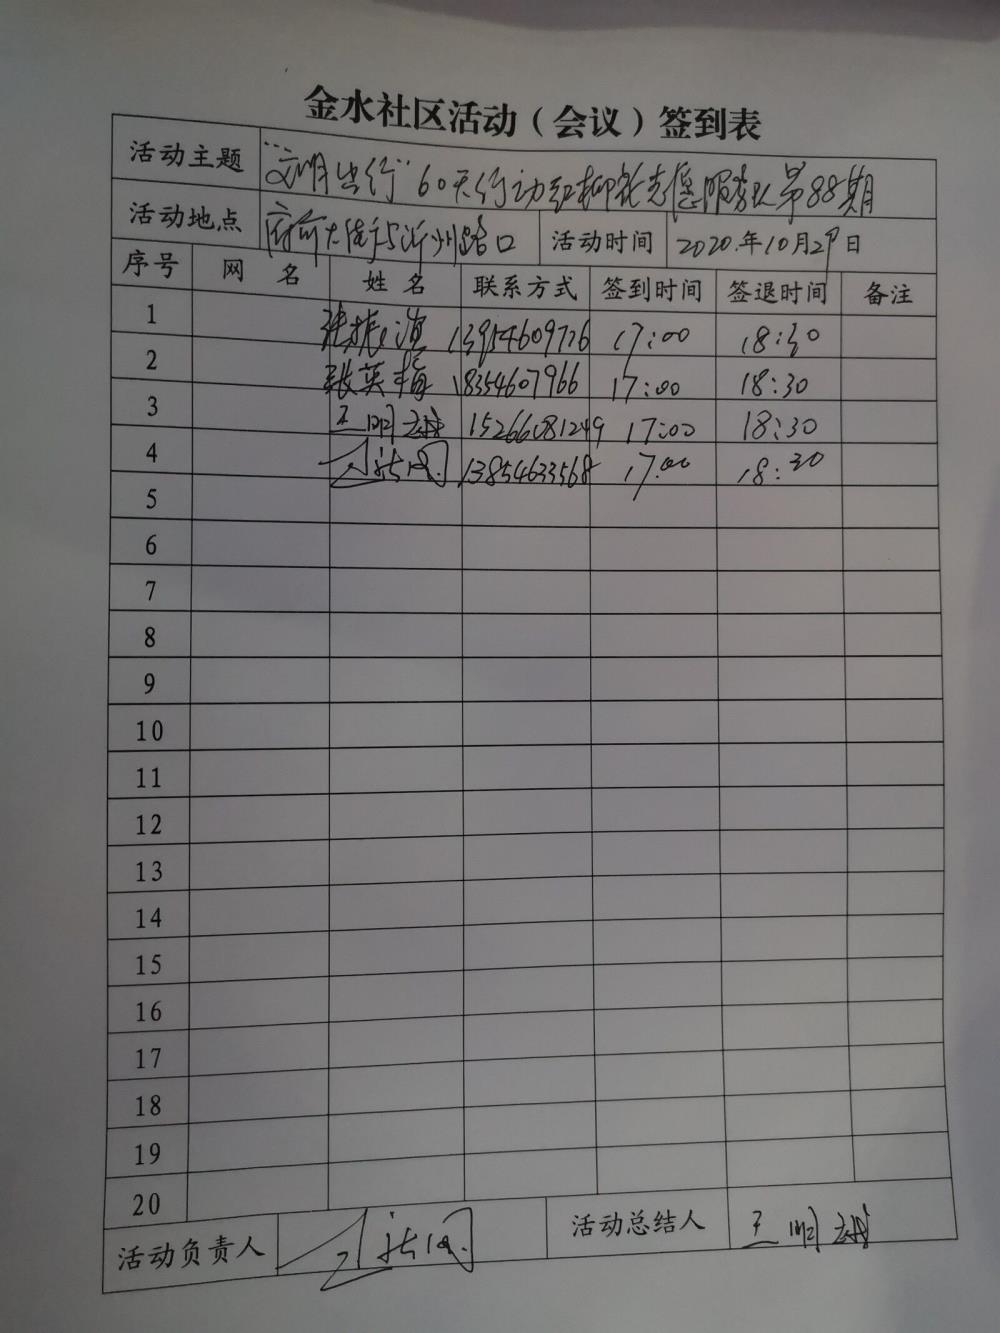 金水社区活动（会议）签到表
活动主题 "文明出行"60天行动红柳社志愿服务队第88期
活动地点 府前大街与沂州路口 活动时间 2020.年10月29日
序号 网 名 姓 名 联系方式 签到时间 签退时间 备注
1 张振滨 13954609776 17:00 18:30
2 张英梅 18354607966 17:00 18:30
3 王明 15266081249 17:00 18:30
4 13854633568 17:00 18:30
5
6
7
8
9
10
11
12
13
14
15
16
17
18
19
20
活动负责人 活动总结人 王明